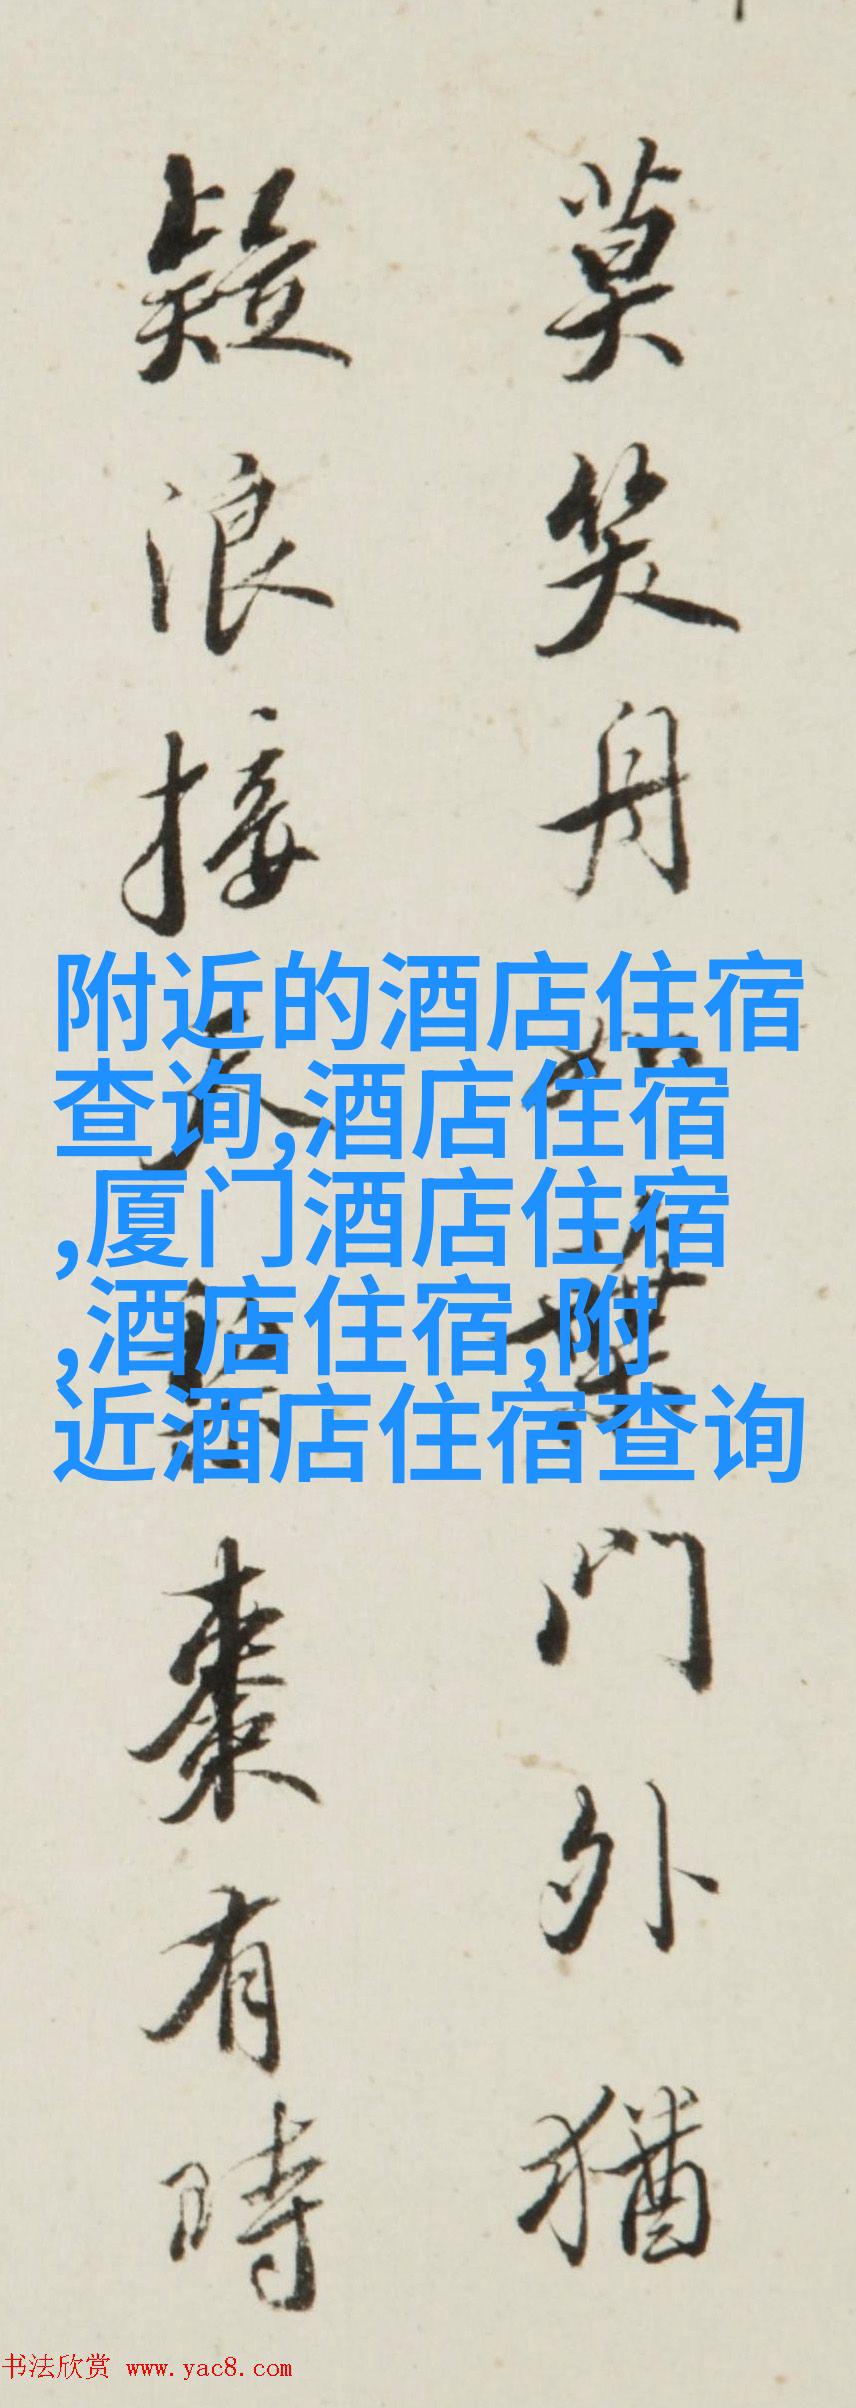 莫笑舟如葉門外猶
疑浪接天棗有時
附近的酒店住宿
查询,酒店住宿
,厦门酒店住宿
,酒店住宿,附
近酒店住宿查询
书法欣赏 www.yac8.com